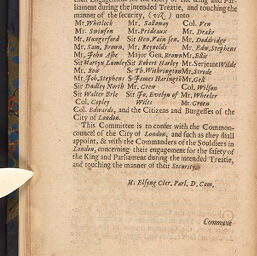 their Engagement for the King and Par-
liament during the intended Treatie, and touching the
manner of the security, (viz.) unto
Mr. Whitlock Mr. Sallway Col. Ven
Mr. Swinfen Mr. Prideaux Mr. Drake
Mr. Hungerford Sir Hen. Vain sen. Mr. Doddridge
Mr. Sam. Brown, Mr. Reynolds Mr. Edw. Stephens
Mr. John Ashe Major Gen. Brown Mr. Ellis
Sir Martyn Lumley Sir Robert Harley Mr. Serjeant Wilde
Mr. Bois Sr Th. Withrington Mr. Strode
Mr. Job. Stephens Sr James Harington Mr. Gell
Sir Dudley North Mr. Crew Col. Wilson
Sir Walter Erle Sir Jo. Evelyn of Mr. Wheeler
Col. Copley Wilts Mr. Green
Col. Edwards, and the Citizens and Burgesses of the
City of London.
This Committee is to confer with the Common-
councel of the City of London, and such as they shall
appoint, & with the Commanders of the Souldiers in
London, concerning their engagement for the safety of
the King and Parliament during the intended Treatie,
and touching the manner of their Security.
H. Elsyng Cler. Parl. D. Com.
Commune